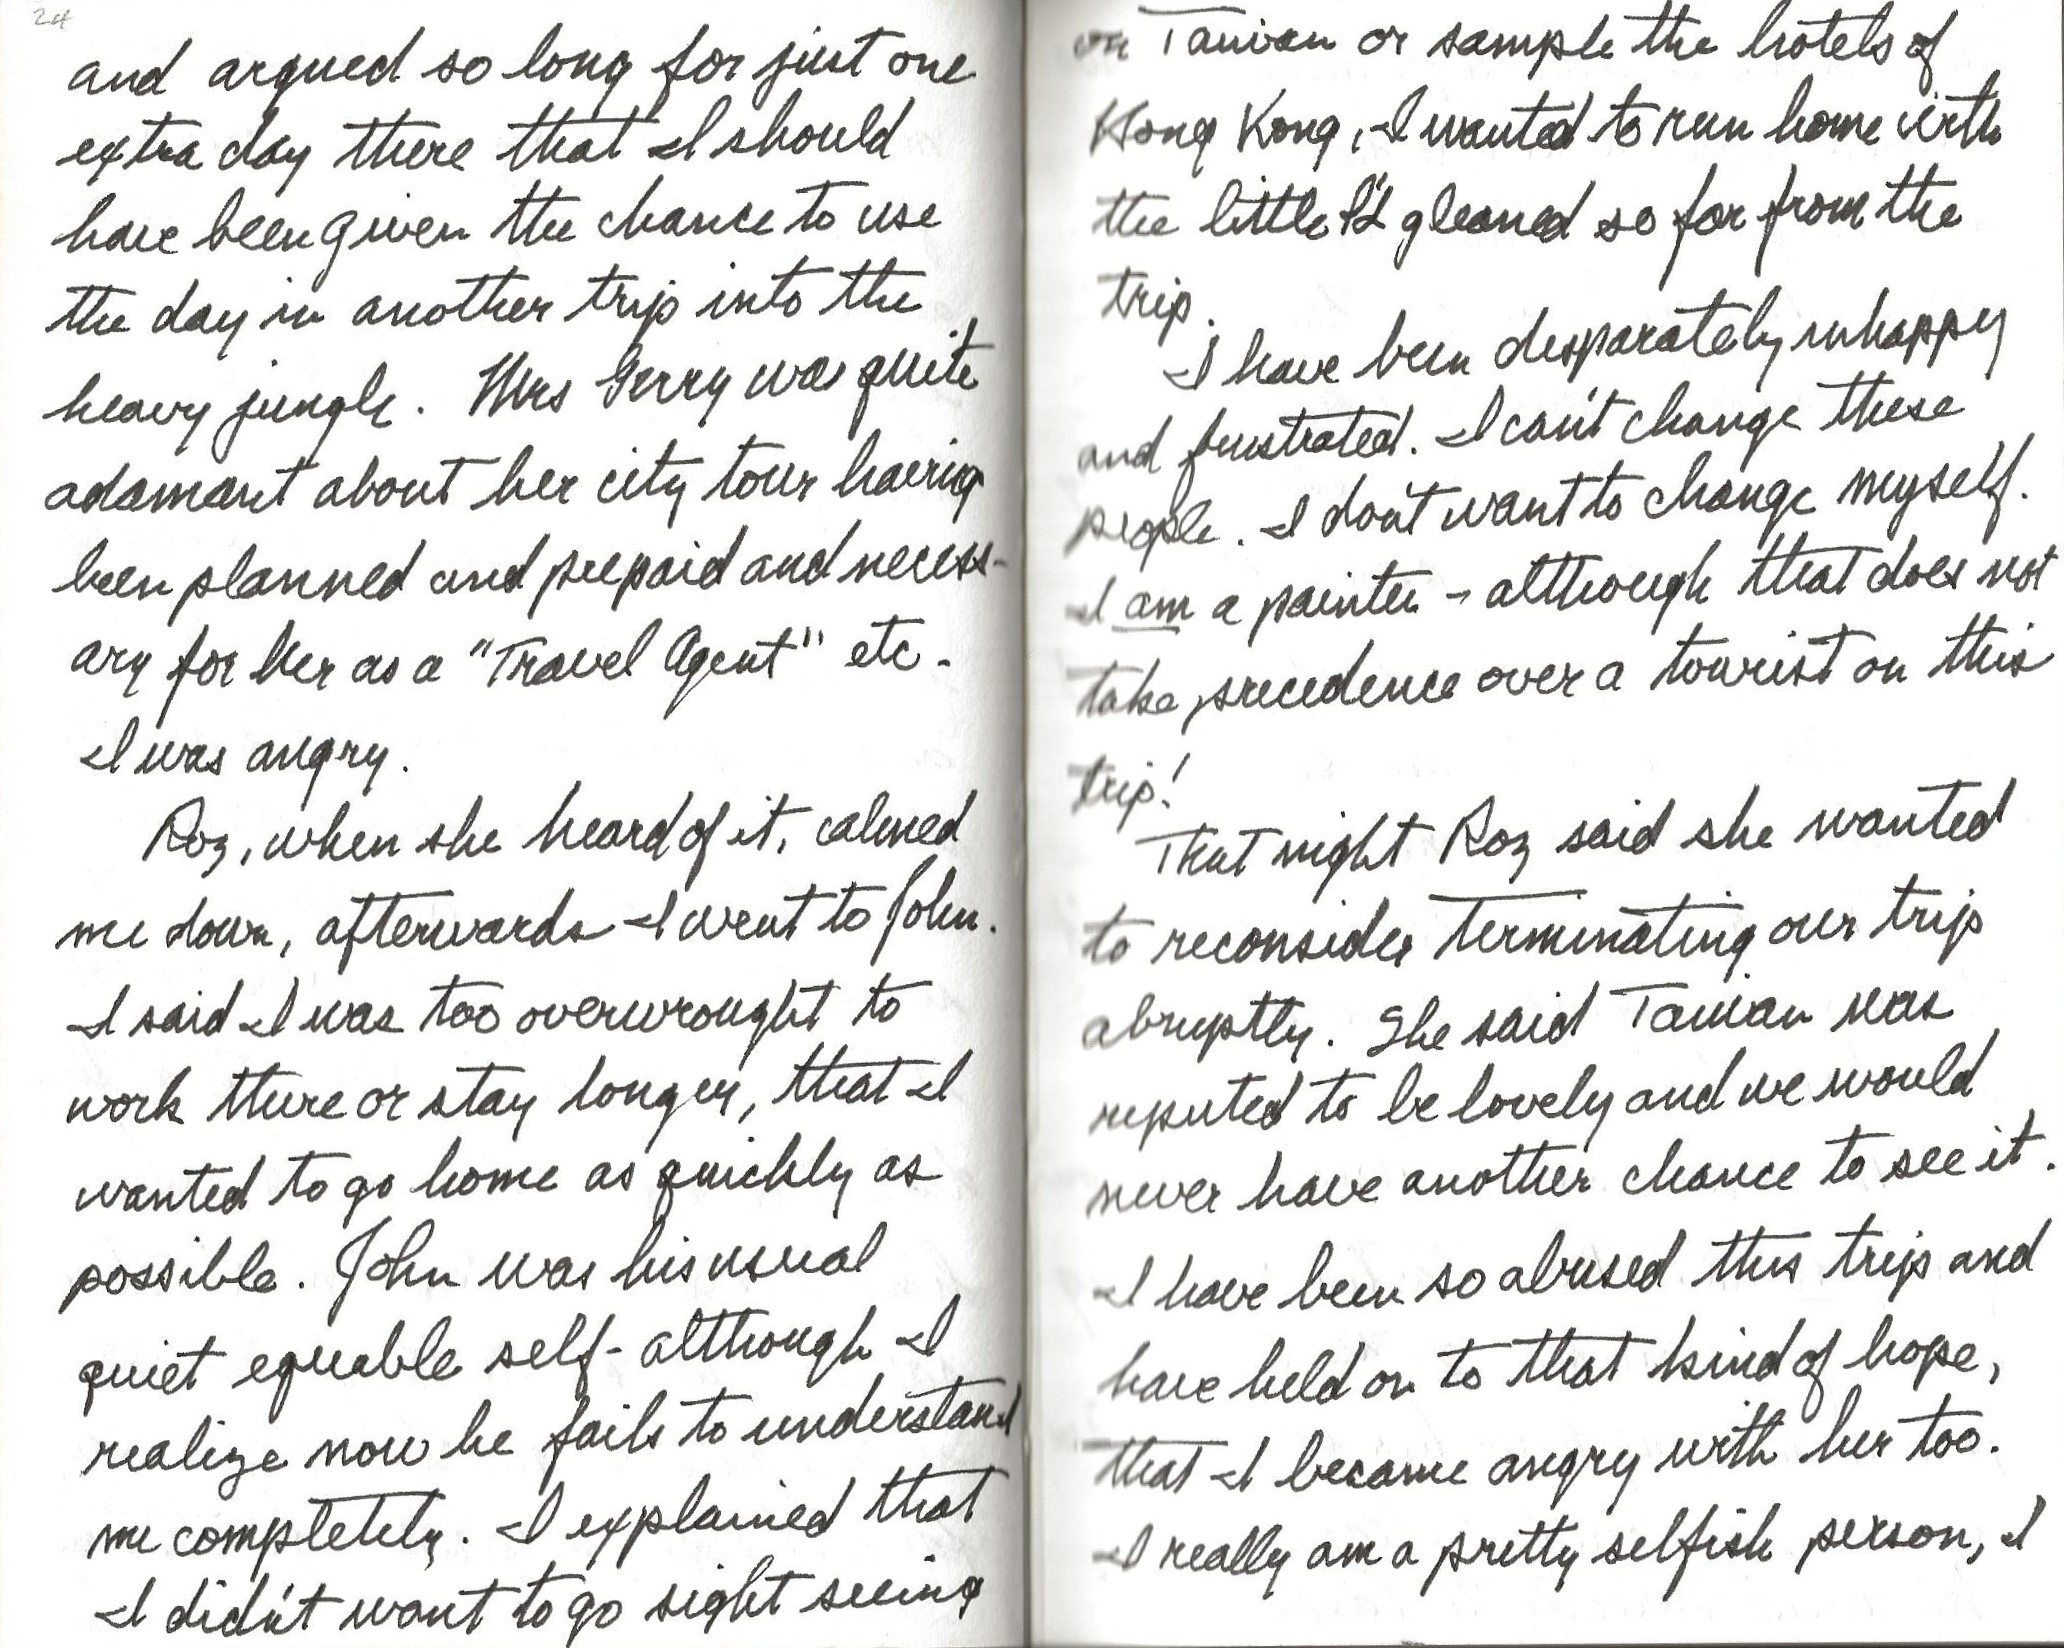 24
and argued so long for just one
extra day there that I should
have been given the chance to use
the day in another trip into the
heavy jungle. Mrs Gerry was quite
adamant about her city tour having
been planned and prepaid and necess-
ary for her as a "Travel Agent" etc.
I was angry.
Roz, when she heard of it, calmed
me down, afterwards I went to John.
I said I was too overwrought to
work there or stay longer, that I
wanted to go home as quickly as
possible. John was his usual
quiet equable self - although I
realize now he fails to understand
me completely. I explained that
I didn't want to go sight seeing
on Taiwan or sample the hotels of
Hong Kong, I wanted to run home with
the little I'd gleaned so far from the
trip.
I have been desparately unhappy
and frustrated. I can't change these
people. I don't want to change myself.
I am a painter - although that does not
take precedence over a tourist on this
trip!
That night Roz said she wanted
to reconsider terminating our trip
abruptly. She said Taiwan was
reputed to be lovely and we would
never have another chance to see it.
I have been so abused this trip and
have held on to that kind of hope,
that I became angry with her too.
I really am a pretty selfish person, I